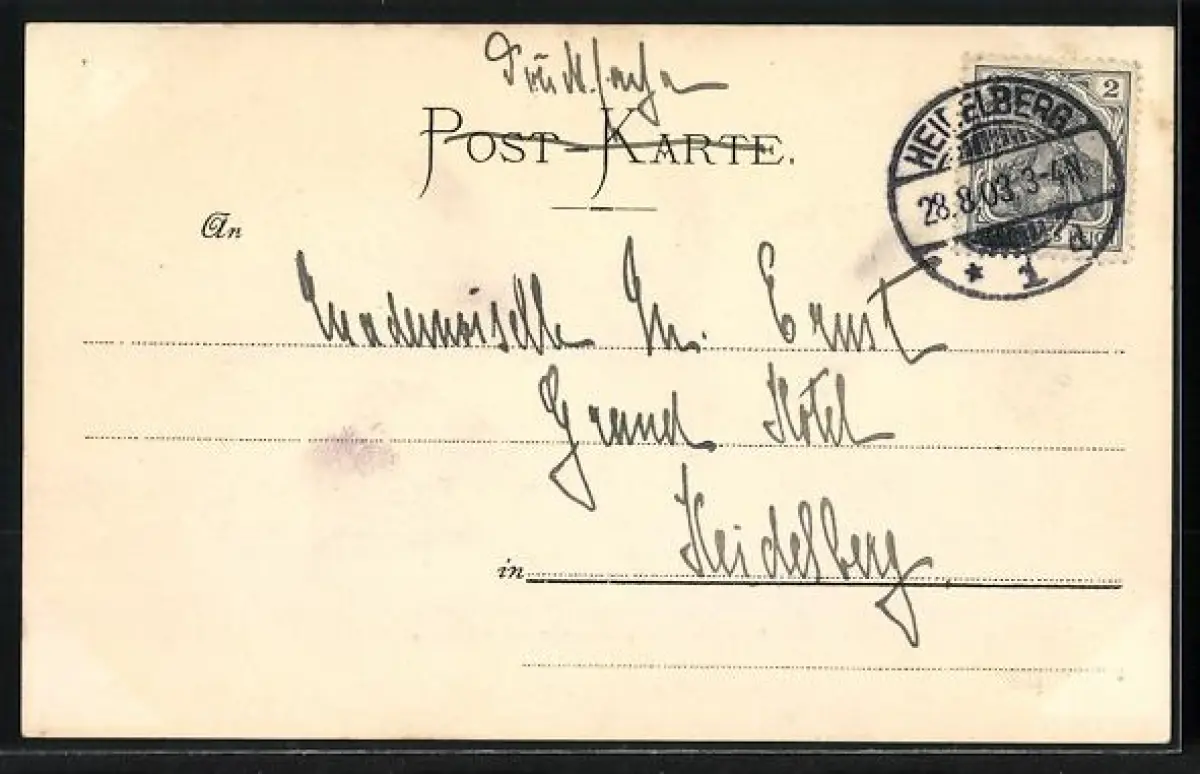 Drucksache
POST-KARTE.
2
HEIDELBERG
28.8.03. 3-4N.
* 1
An
Mademoiselle M. Ernst
Grand Hôtel
in Heidelberg